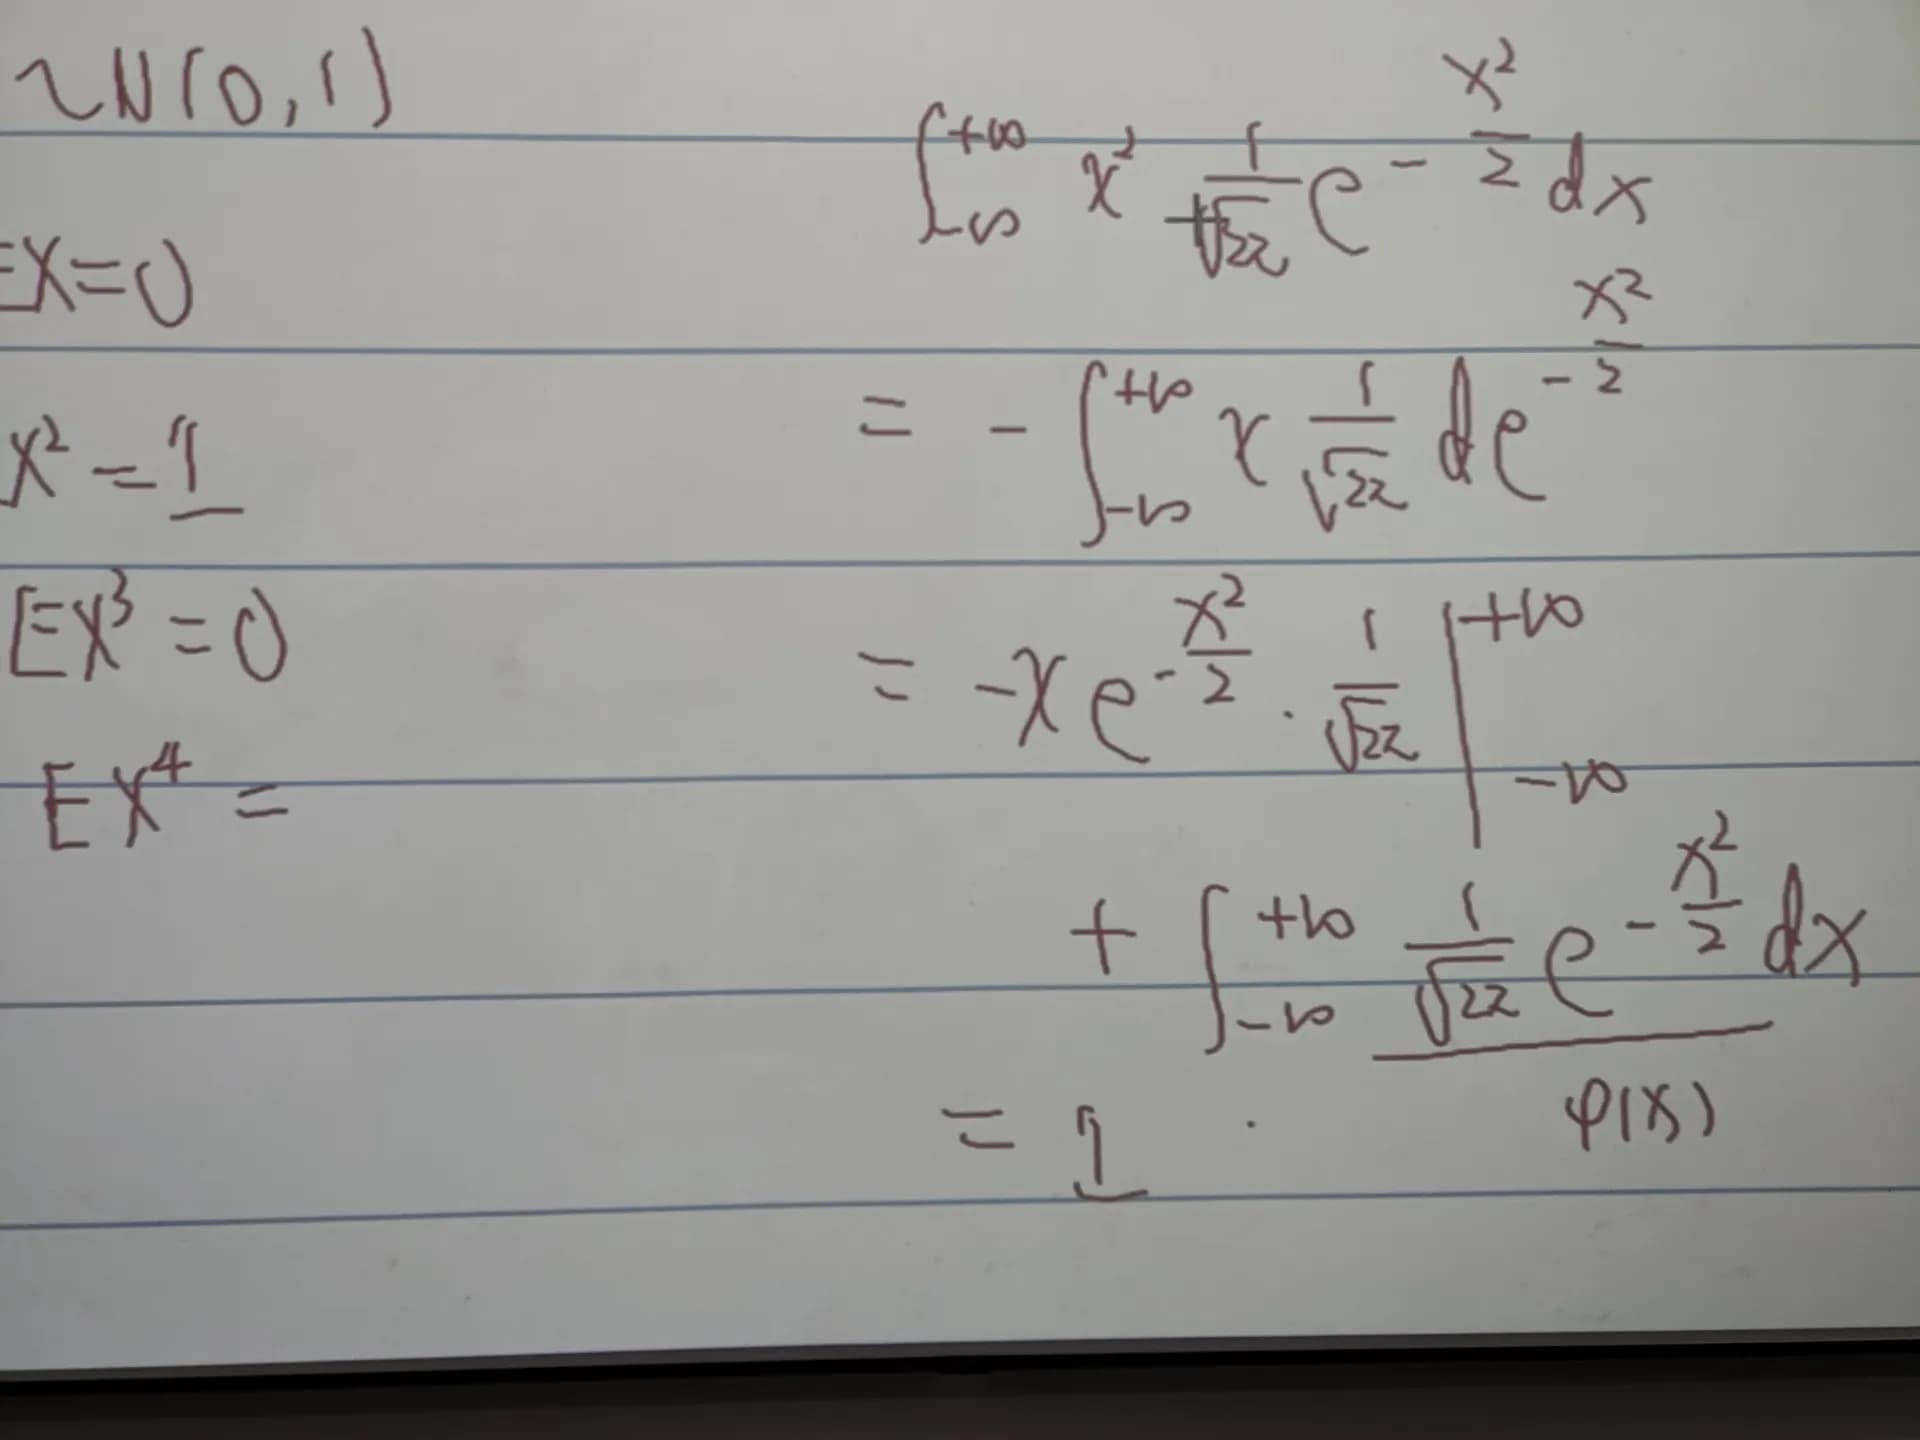 ~N(0,1)
EX=0
X²=1
EX³=0
EX⁴=
∫_{-∞}^{+∞} x² \frac{1}{\sqrt{2π}} e^{-\frac{x²}{2}} dx
= - ∫_{-∞}^{+∞} x \frac{1}{\sqrt{2π}} de^{-\frac{x²}{2}}
= -x e^{-\frac{x²}{2}} · \frac{1}{\sqrt{2π}} |_{-∞}^{+∞}
+ ∫_{-∞}^{+∞} \frac{1}{\sqrt{2π}} e^{-\frac{x²}{2}} dx
φ(x)
= 1